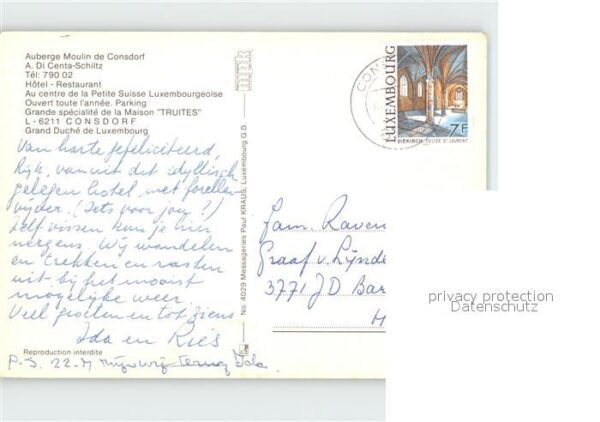 Auberge Moulin de Consdorf
A. Di Centa-Schiltz
Tél: 790 02
Hôtel - Restaurant
Au centre de la Petite Suisse Luxembourgeoise
Ouvert toute l'année. Parking
Grande spécialité de la Maison "TRUITES"
L - 6211 CONSDORF
Grand Duché de Luxembourg
Van harte gefeliciteerd,
Rijk, vanuit dit idyllisch
gelegen hotel met forellen-
vijver. (Iets voor jou?)
Zelf vissen kun je hier
nergens. Wij wandelen
en trekken en rusten
uit bij het mooist
mogelijke weer.
Veel groeten en tot ziens
Ida en Kies
Reproduction interdite
P.S. 22-7 zijn wij terug Ida
mpk
No. 4029 Messageries Paul KRAUS, Luxembourg G.D.
CON
LUXEMBOURG
7F
DIEKIRCH: EGLISE ST LAURENT
Fam. Raven
Graaf v. Lynde
3771 JD Bar
H
mpk
privacy protection
Datenschutz